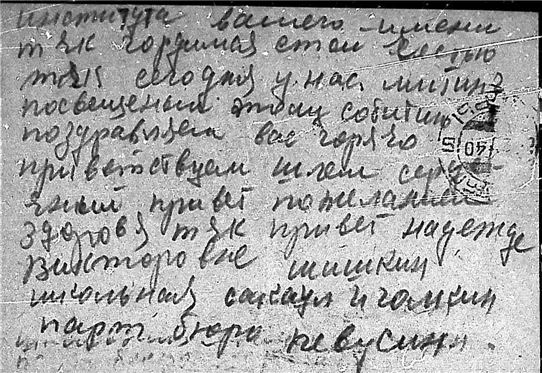 института вашего имени
тчк гордимся этой честью
тчк сегодня у нас митинг
посвещеный этому событию
поздравляем вас горячо
приветствуем шлем серде
чный привет пожелания
здоровя тчк привет надежде
викторовне шишкин
школьная
парт бюро
40